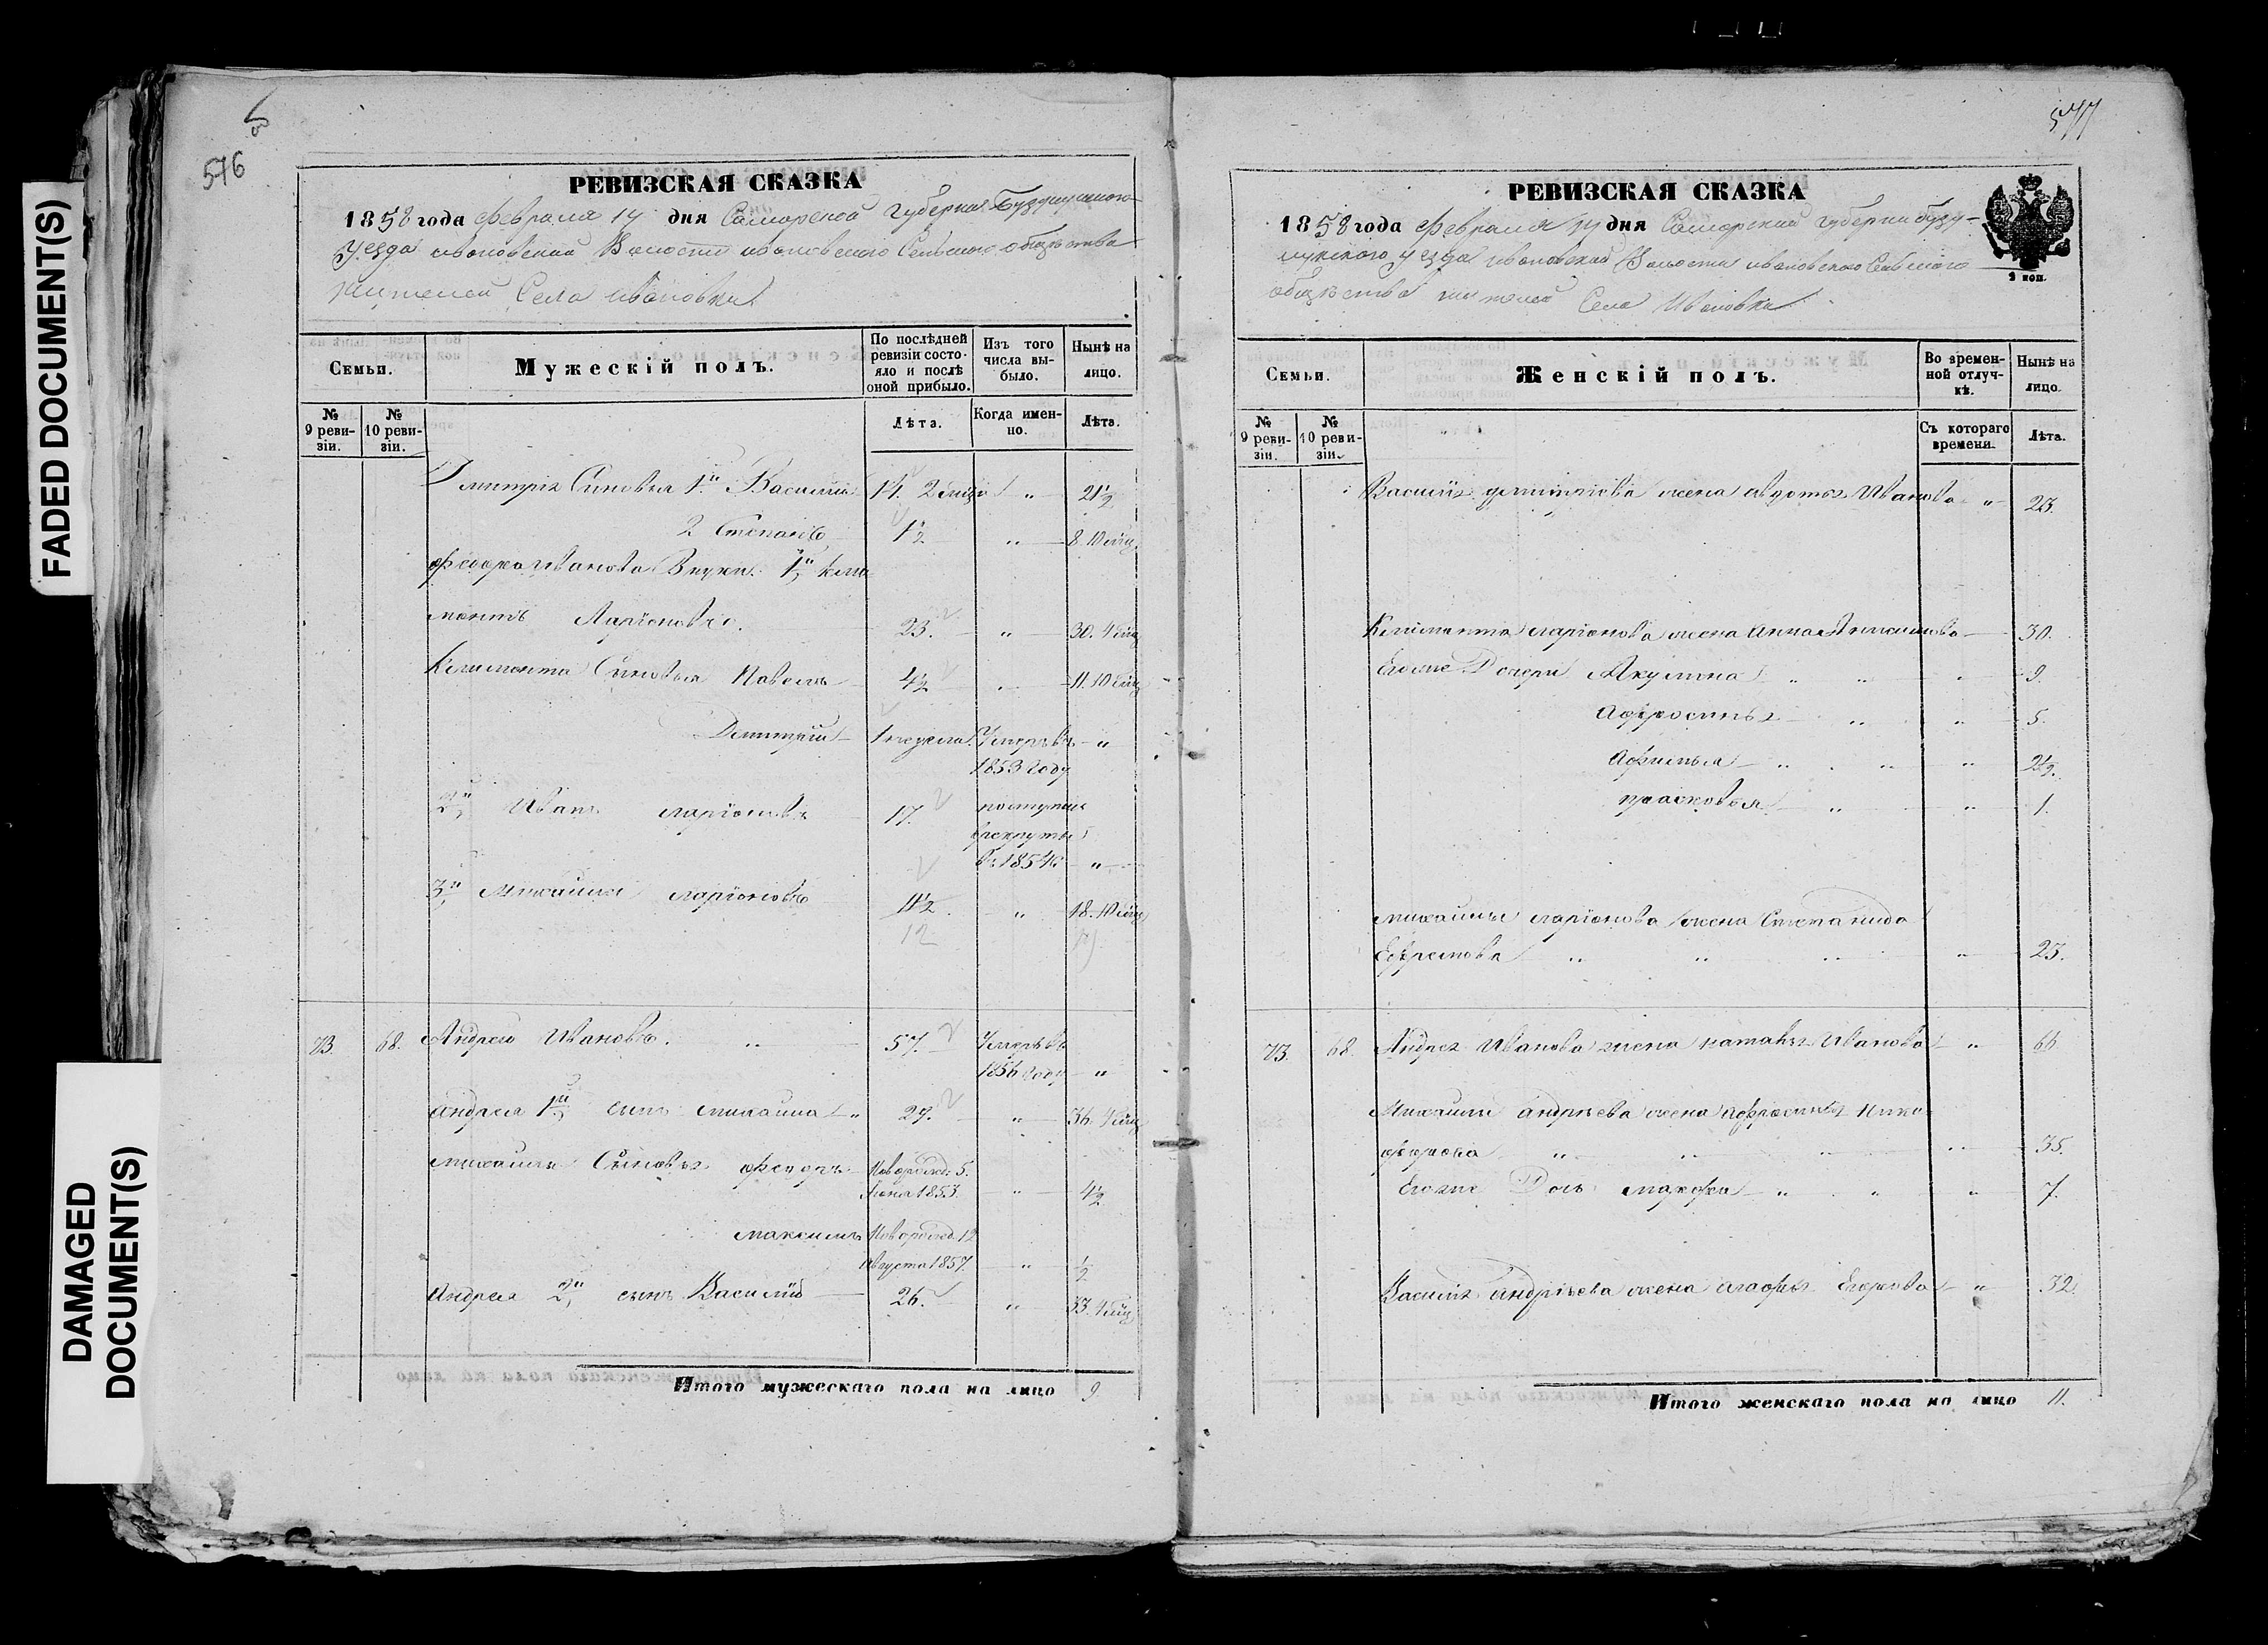 FADED DOCUMENT(S)
DAMAGED DOCUMENT(S)
576
РЕВИЗСКАЯ СКАЗКА
1858 года Февраля 14 дня Самарской губернии Бузулукского
Уезда Ивановской Волости Ивановского Сельского общества
жителей Села Ивановки
Семьи.
Мужескій полъ.
По послѣдней ревизіи состояло и послѣ оной прибыло.
Изъ того числа выбыло.
Нынѣ на лицо.
№ 9 ревизіи.
№ 10 ревизіи.
Лѣта.
Когда именно.
Лѣта.
Дмитрія Сыновья 1й Василий 14. " 21½
2 Степанъ 1½ " 8. 10 мѣц
Федора Иванова Внуки. 1й Кли
монтъ Ларіоновъ. 23. " 30. 4 мѣц
Климонта Сыновья Павелъ 4½ " 11. 10 мѣц
Дмитрий 1 неделя. Умеръ въ "
1853 году
2й Иванъ Ларіоновъ 17. поступил
в рекруты
въ 1854 "
3й Михайла Ларіоновъ 11½. " 18. 10 мѣц
12
73. 68. Андрей Ивановъ. " 57. Умеръ въ
1856 году "
Андрея 1й сынъ Михайла " 29. " 36. 4 мѣц
Михайлы Сыновья Федоръ Новорожд. 5.
Июня 1853. " 4½
Максимъ Новорожд. 12
Августа 1857. " ½
Андрея 2й сынъ Василий 26. " 33. 4 мѣц
Итого мужескаго пола на лицо 9
577
РЕВИЗСКАЯ СКАЗКА
1858 года Февраля 14 дня Самарской губернии Бузу-
лукского Уезда Ивановской Волости Ивановского Сельского
общества жителей Села Ивановки
2 коп.
Семьи.
Женскій полъ.
Во временной отлучкѣ.
Нынѣ на лицо.
№ 9 ревизіи.
№ 10 ревизіи.
Съ котораго времени.
Лѣта.
Василия Дмитріева жена Авдотья Иванова " 23.
Климонта Ларіонова жена Анна 30.
Егоже Дочери Акулина " " " 9.
Афросинья " " 5.
Афимья " " " 2½.
Прасковья " " 1.
Михайлы Ларіонова жена Степанида
Ефремова " " " " 23.
73. 68. Андрея Иванова жена Наталья Иванова " 66
Михайлы Андрѣева жена Афросинья Ники
форова " " " 35.
Егоже Дочь Марфа " " " 7.
Василия Андрѣева жена Агафья Егорова " 32.
Итого женскаго пола на лицо 11.